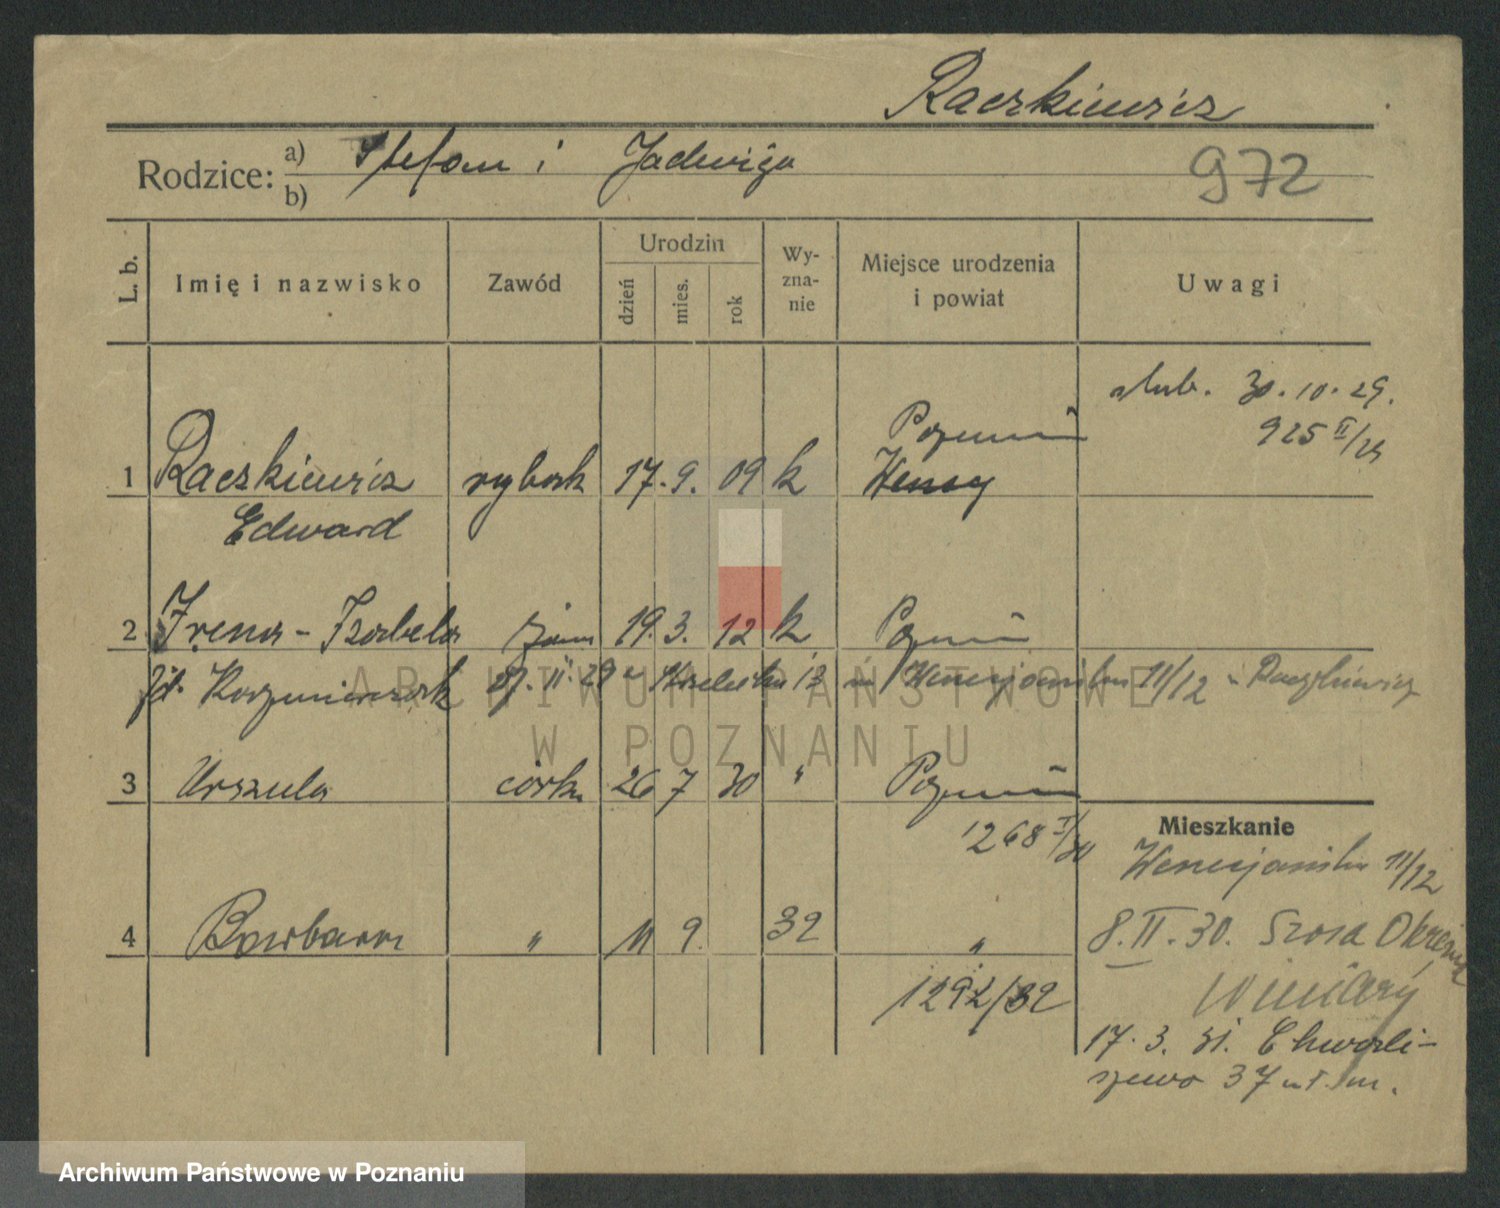 Raczkiewicz
Rodzice: a) Stefan i Jadwiga
b)
972
L. b. Imię i nazwisko Zawód Urodzin dzień mies. rok Wyznanie Miejsce urodzenia i powiat Uwagi
ślub. 30. 10. 29.
925 II/29
Poznań
1 Raczkiewicz rybak 17. 9. 09 k
Edward
2 Irena - Izabela żona 19. 3. 12 k Poznań
Kaźmierczak 27. 11. 29 13 Wenecjańska 11/12 Raczkiewicz
3 Urszula córka 26 7 30 " Poznań
1268 I/30
Mieszkanie
Wenecjańska 11/12
4 Barbara " 11 9. 32 "
1292/32
8. II. 30. Szosa Okrężna
Winiary
17. 3. 31. Chwali-
szewo 37 m.
ARCHIWUM PAŃSTWOWE
W POZNANIU
Archiwum Państwowe w Poznaniu